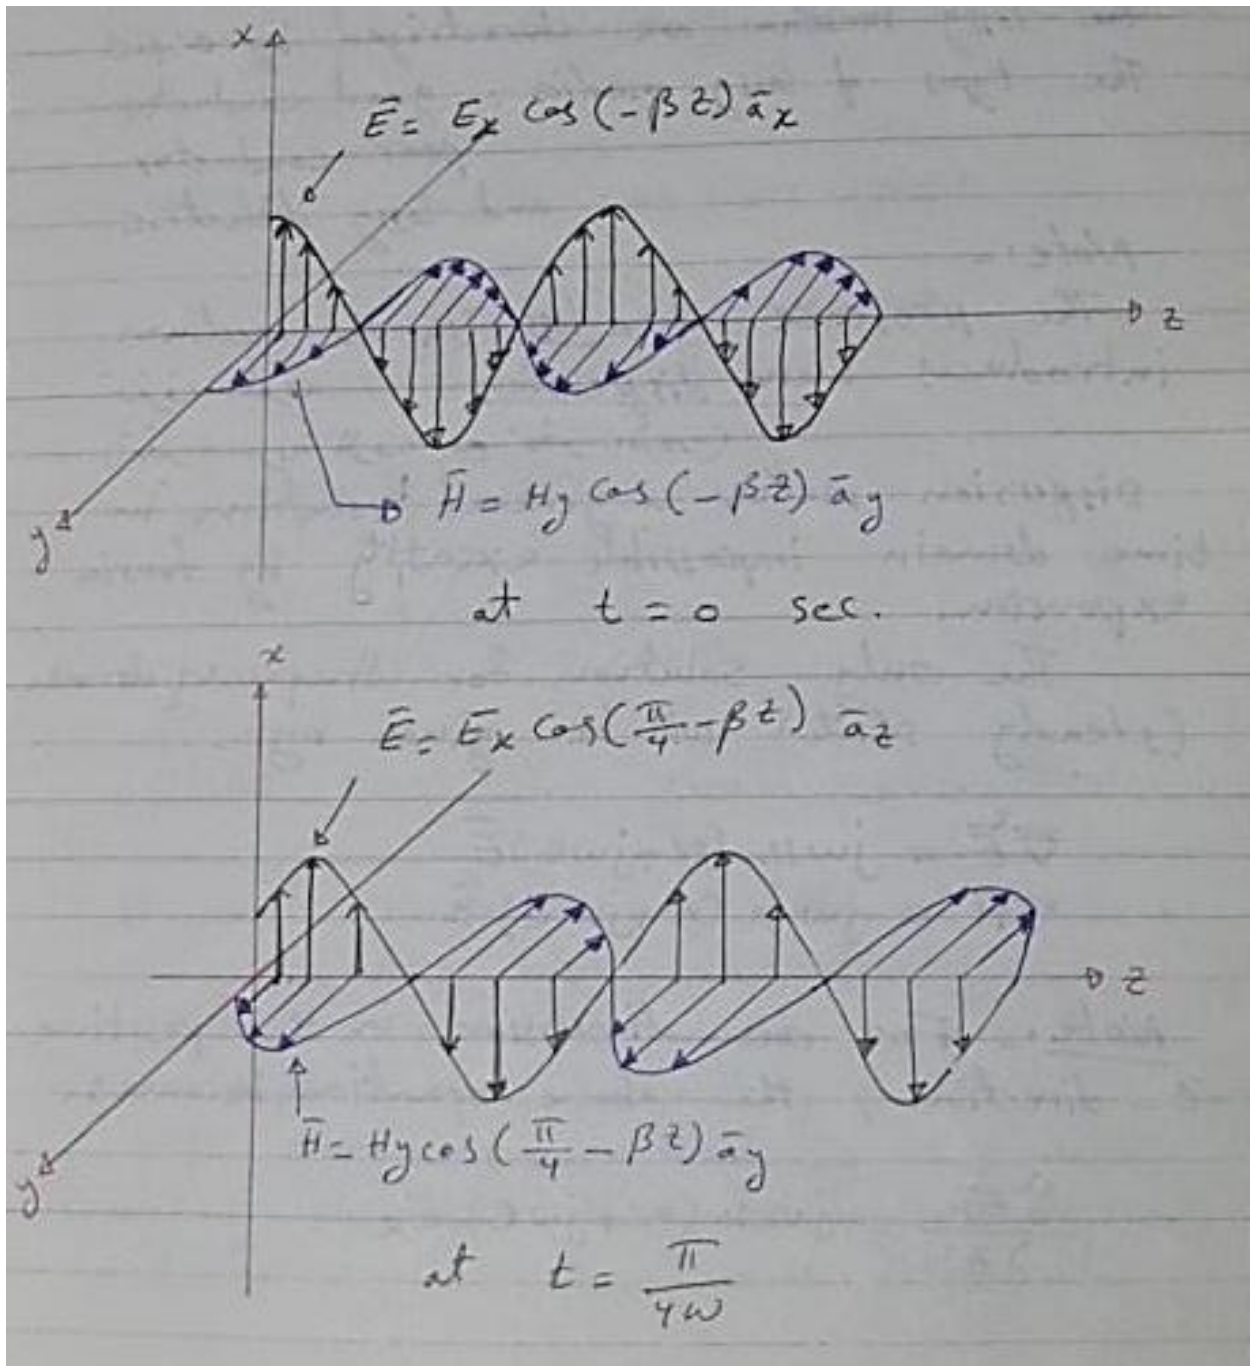 x
Ē = Eₓ cos(-βz) āₓ
z
H̄ = Hy cos(-βz) āy
y
at t = 0 sec.
x
Ē = Eₓ cos(π/4 - βz) āz
z
H̄ = Hy cos(π/4 - βz) āy
y
at t = π/4ω